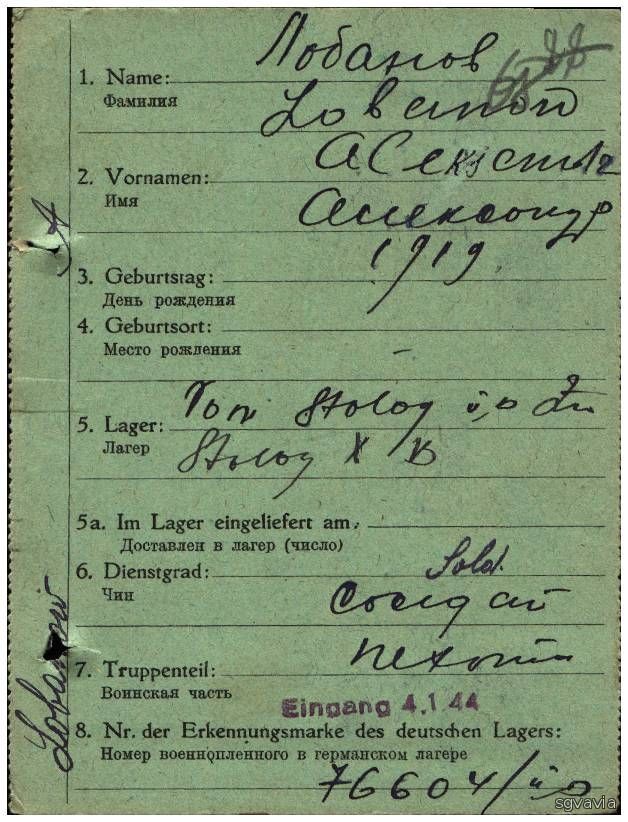 Лобанов
1. Name:
Фамилия
2. Vornamen:
Имя
Александр
1919
3. Geburtstag:
День рождения
4. Geburtsort:
Место рождения
–
5. Lager:
Лагер
Stalag X B
5a. Im Lager eingeliefert am.
Доставлен в лагер (число)
6. Dienstgrad: Sold.
Чин
солдат
7. Truppenteil:
Воинская часть
Eingang 4.1.44
8. Nr. der Erkennungsmarke des deutschen Lagers:
Номер военнопленного в германском лагере
76604/
Lobanow
sgvavia